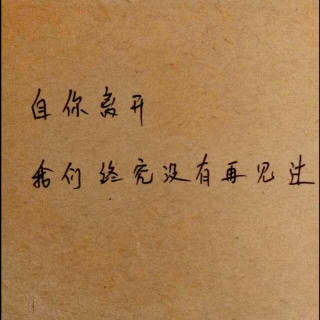 自你离开
我们终究没有再见过